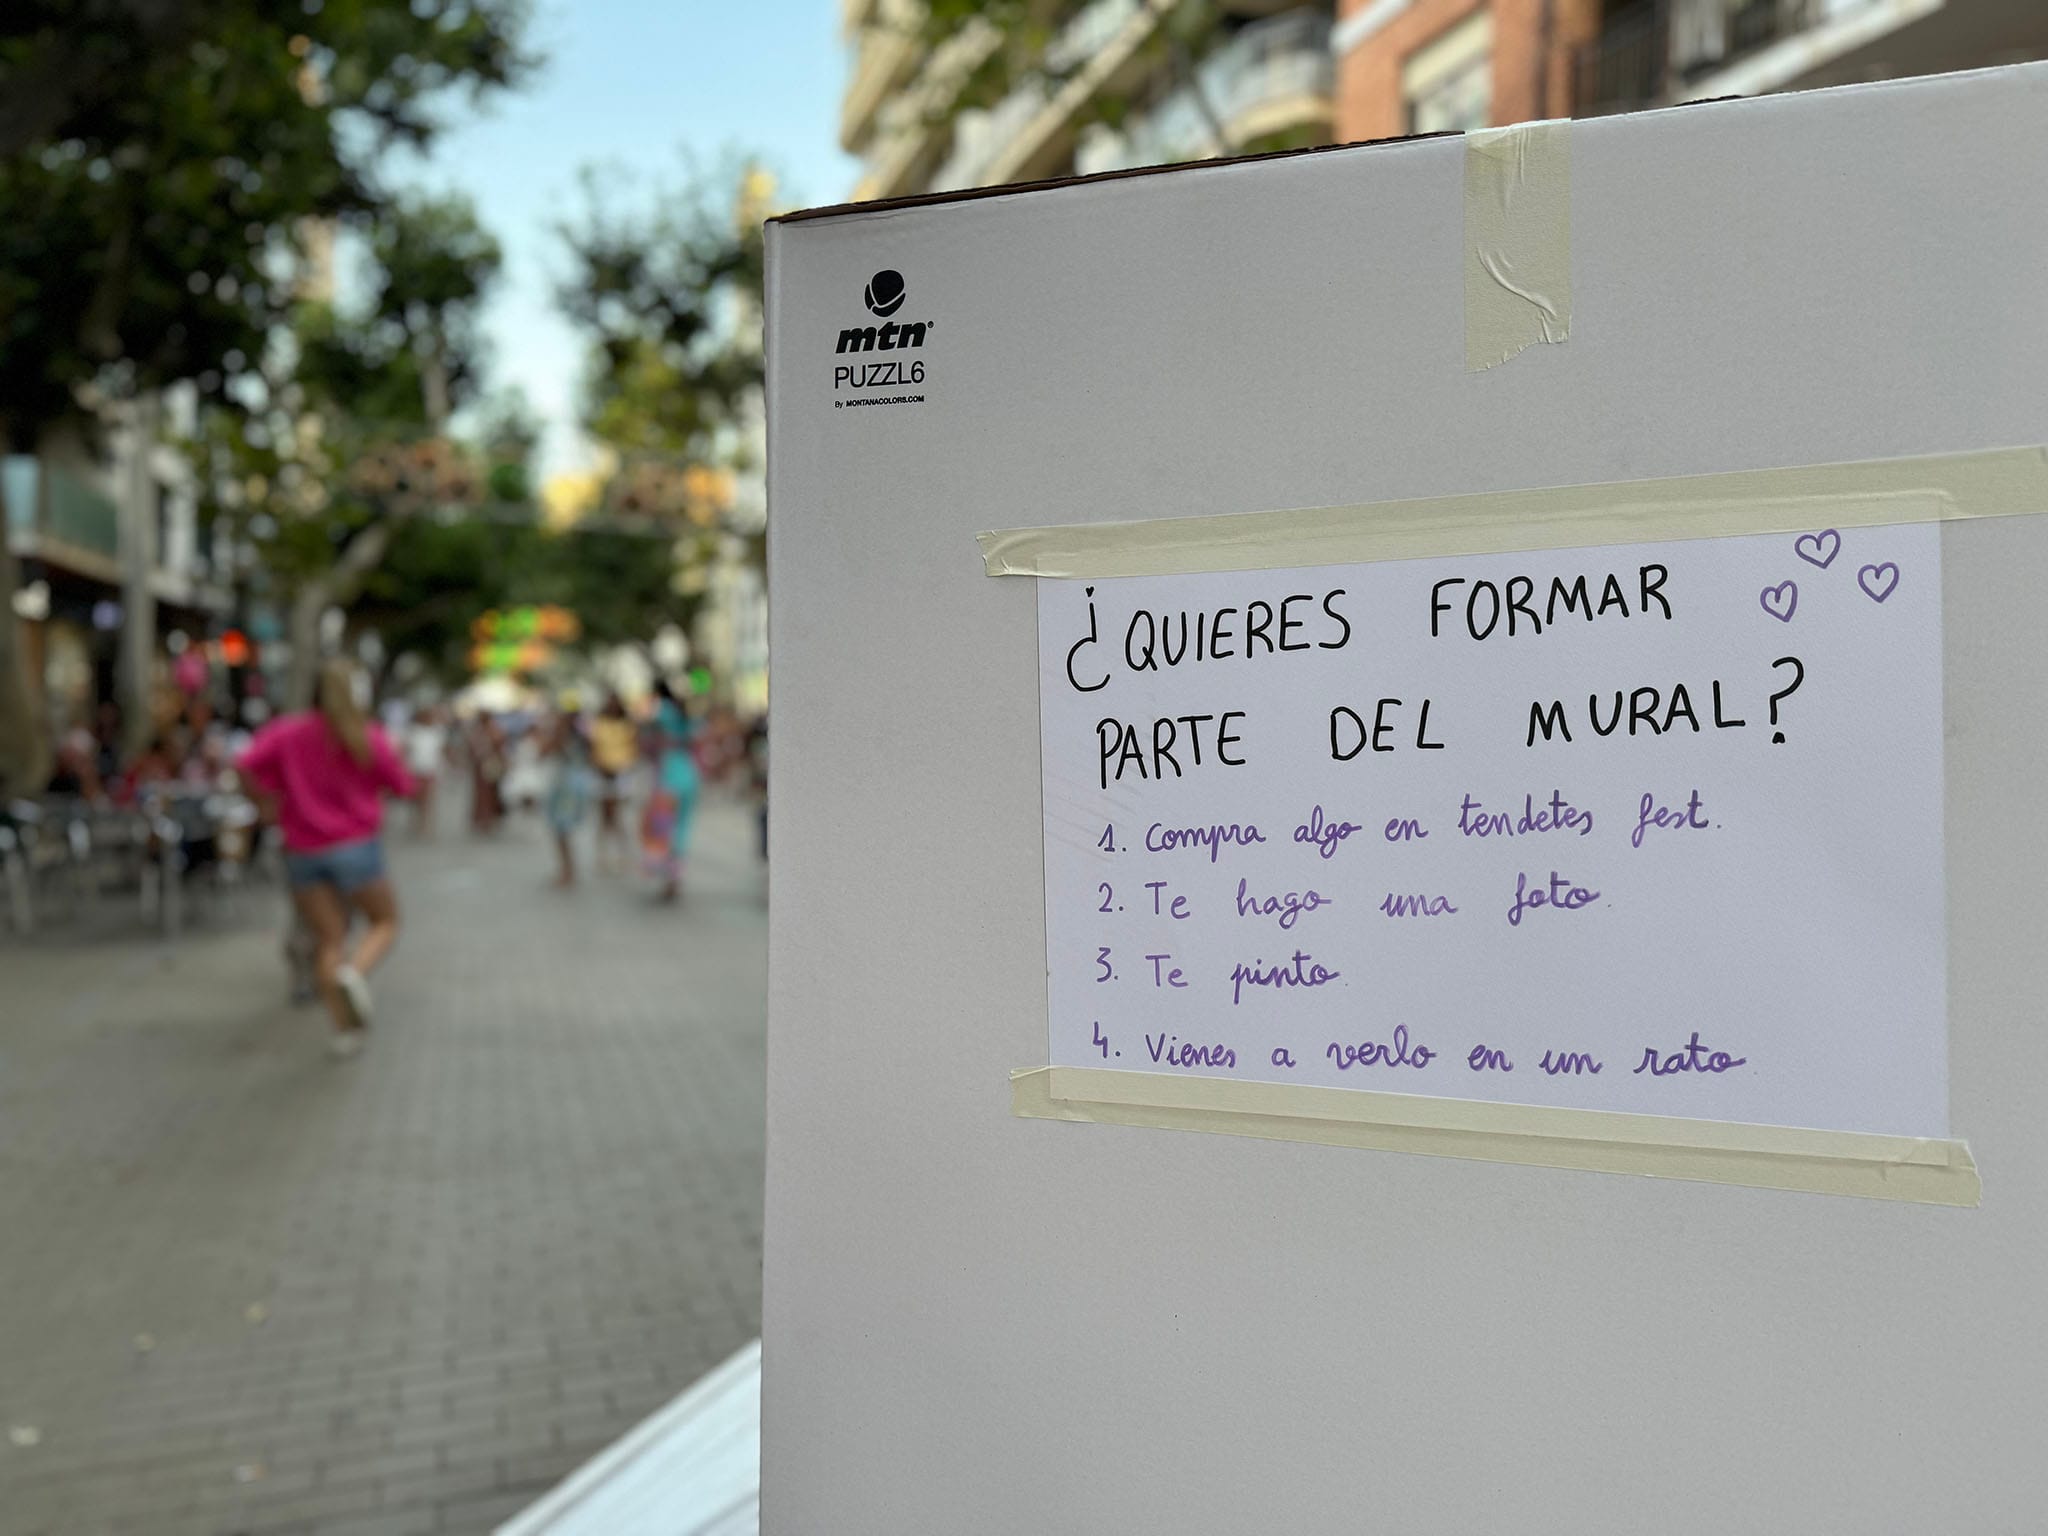 mtn®
PUZZL6
By MONTANACOLORS.COM
¿QUIERES FORMAR
PARTE DEL MURAL?
1. Compra algo en tendetes fest.
2. Te hago una foto.
3. Te pinto.
4. Vienes a verlo en un rato.